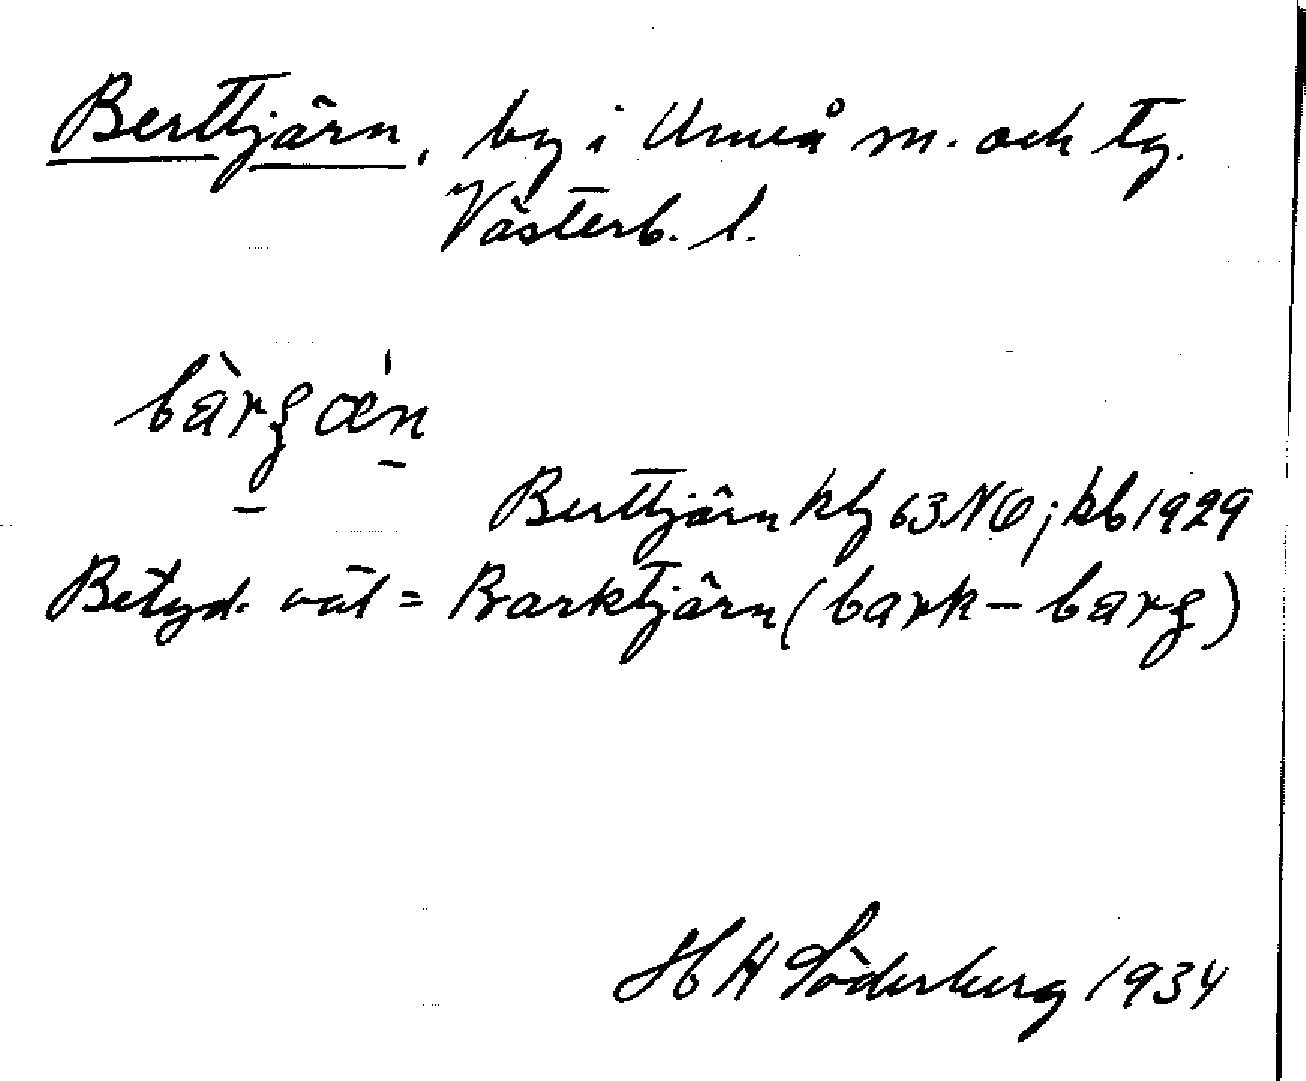 Berttjärn, by i Umeå m. och tg.
Västerb. l.
bàrgǽn
Berttjärn klg 63 NO; kb 1929
Betyd. väl = Barktjärn (bark – barg)
H A Söderberg 1934